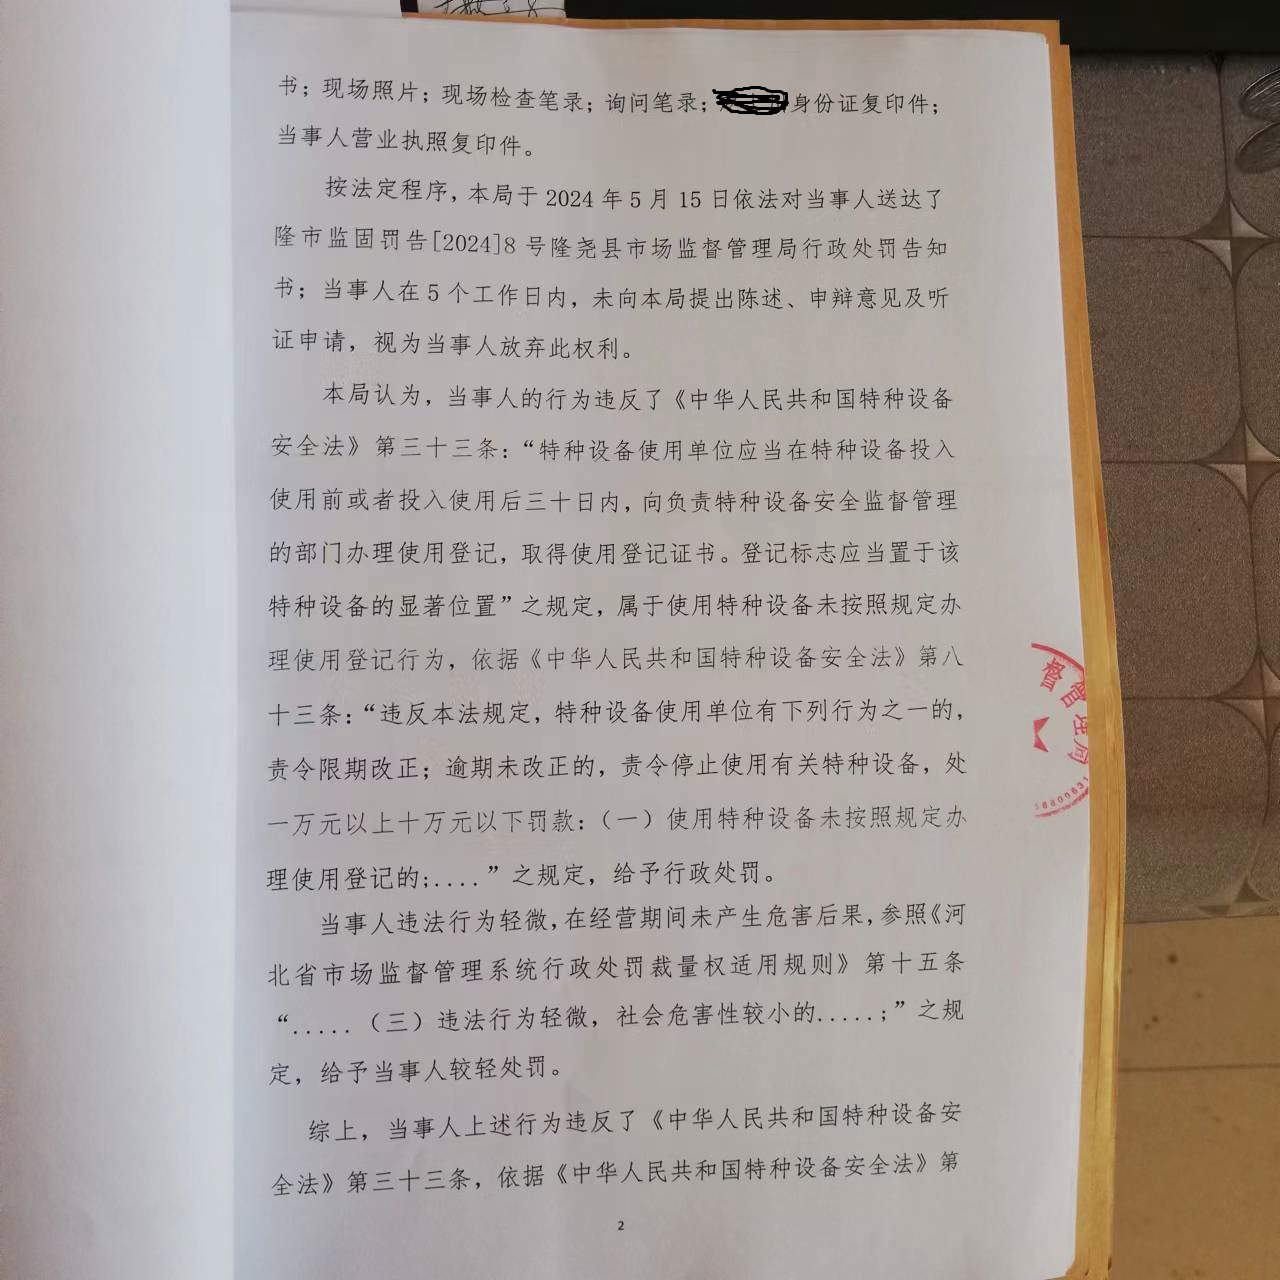 书；现场照片；现场检查笔录；询问笔录；身份证复印件；
当事人营业执照复印件。
按法定程序，本局于 2024 年 5 月 15 日依法对当事人送达了
隆市监固罚告[2024]8 号隆尧县市场监督管理局行政处罚告知
书；当事人在 5 个工作日内，未向本局提出陈述、申辩意见及听
证申请，视为当事人放弃此权利。
本局认为，当事人的行为违反了《中华人民共和国特种设备
安全法》第三十三条：“特种设备使用单位应当在特种设备投入
使用前或者投入使用后三十日内，向负责特种设备安全监督管理
的部门办理使用登记，取得使用登记证书。登记标志应当置于该
特种设备的显著位置”之规定，属于使用特种设备未按照规定办
理使用登记行为，依据《中华人民共和国特种设备安全法》第八
十三条：“违反本法规定，特种设备使用单位有下列行为之一的，
责令限期改正；逾期未改正的，责令停止使用有关特种设备，处
一万元以上十万元以下罚款：（一）使用特种设备未按照规定办
理使用登记的;....”之规定，给予行政处罚。
当事人违法行为轻微，在经营期间未产生危害后果，参照《河
北省市场监督管理系统行政处罚裁量权适用规则》第十五条
“.....（三）违法行为轻微，社会危害性较小的.....；”之规
定，给予当事人较轻处罚。
综上，当事人上述行为违反了《中华人民共和国特种设备安
全法》第三十三条，依据《中华人民共和国特种设备安全法》第
2
督管理局